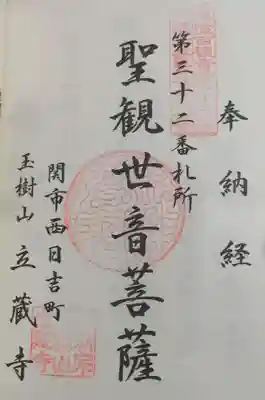 奉納経
第三十二番札所
聖観世音菩薩
関市西日吉町
玉樹山 立蔵寺